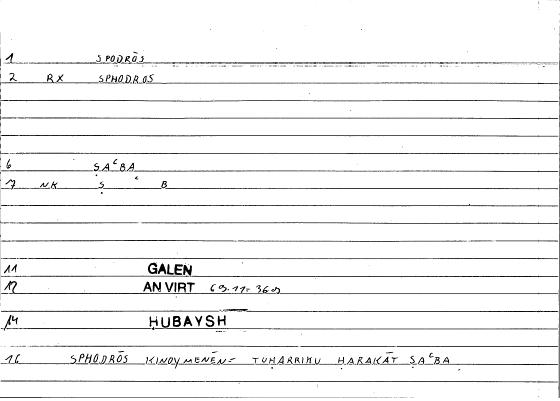 1 SPODRŌS
2 RX SPHODROS
6 ṢAʿBA
7 NK Ṣ ʿ B
11 GALEN
12 AN VIRT
14 HUBAYSH
16 SPHODRŌS KINOYMENĒN= TUḤARRIKU ḤARAKĀT ṢAʿBA